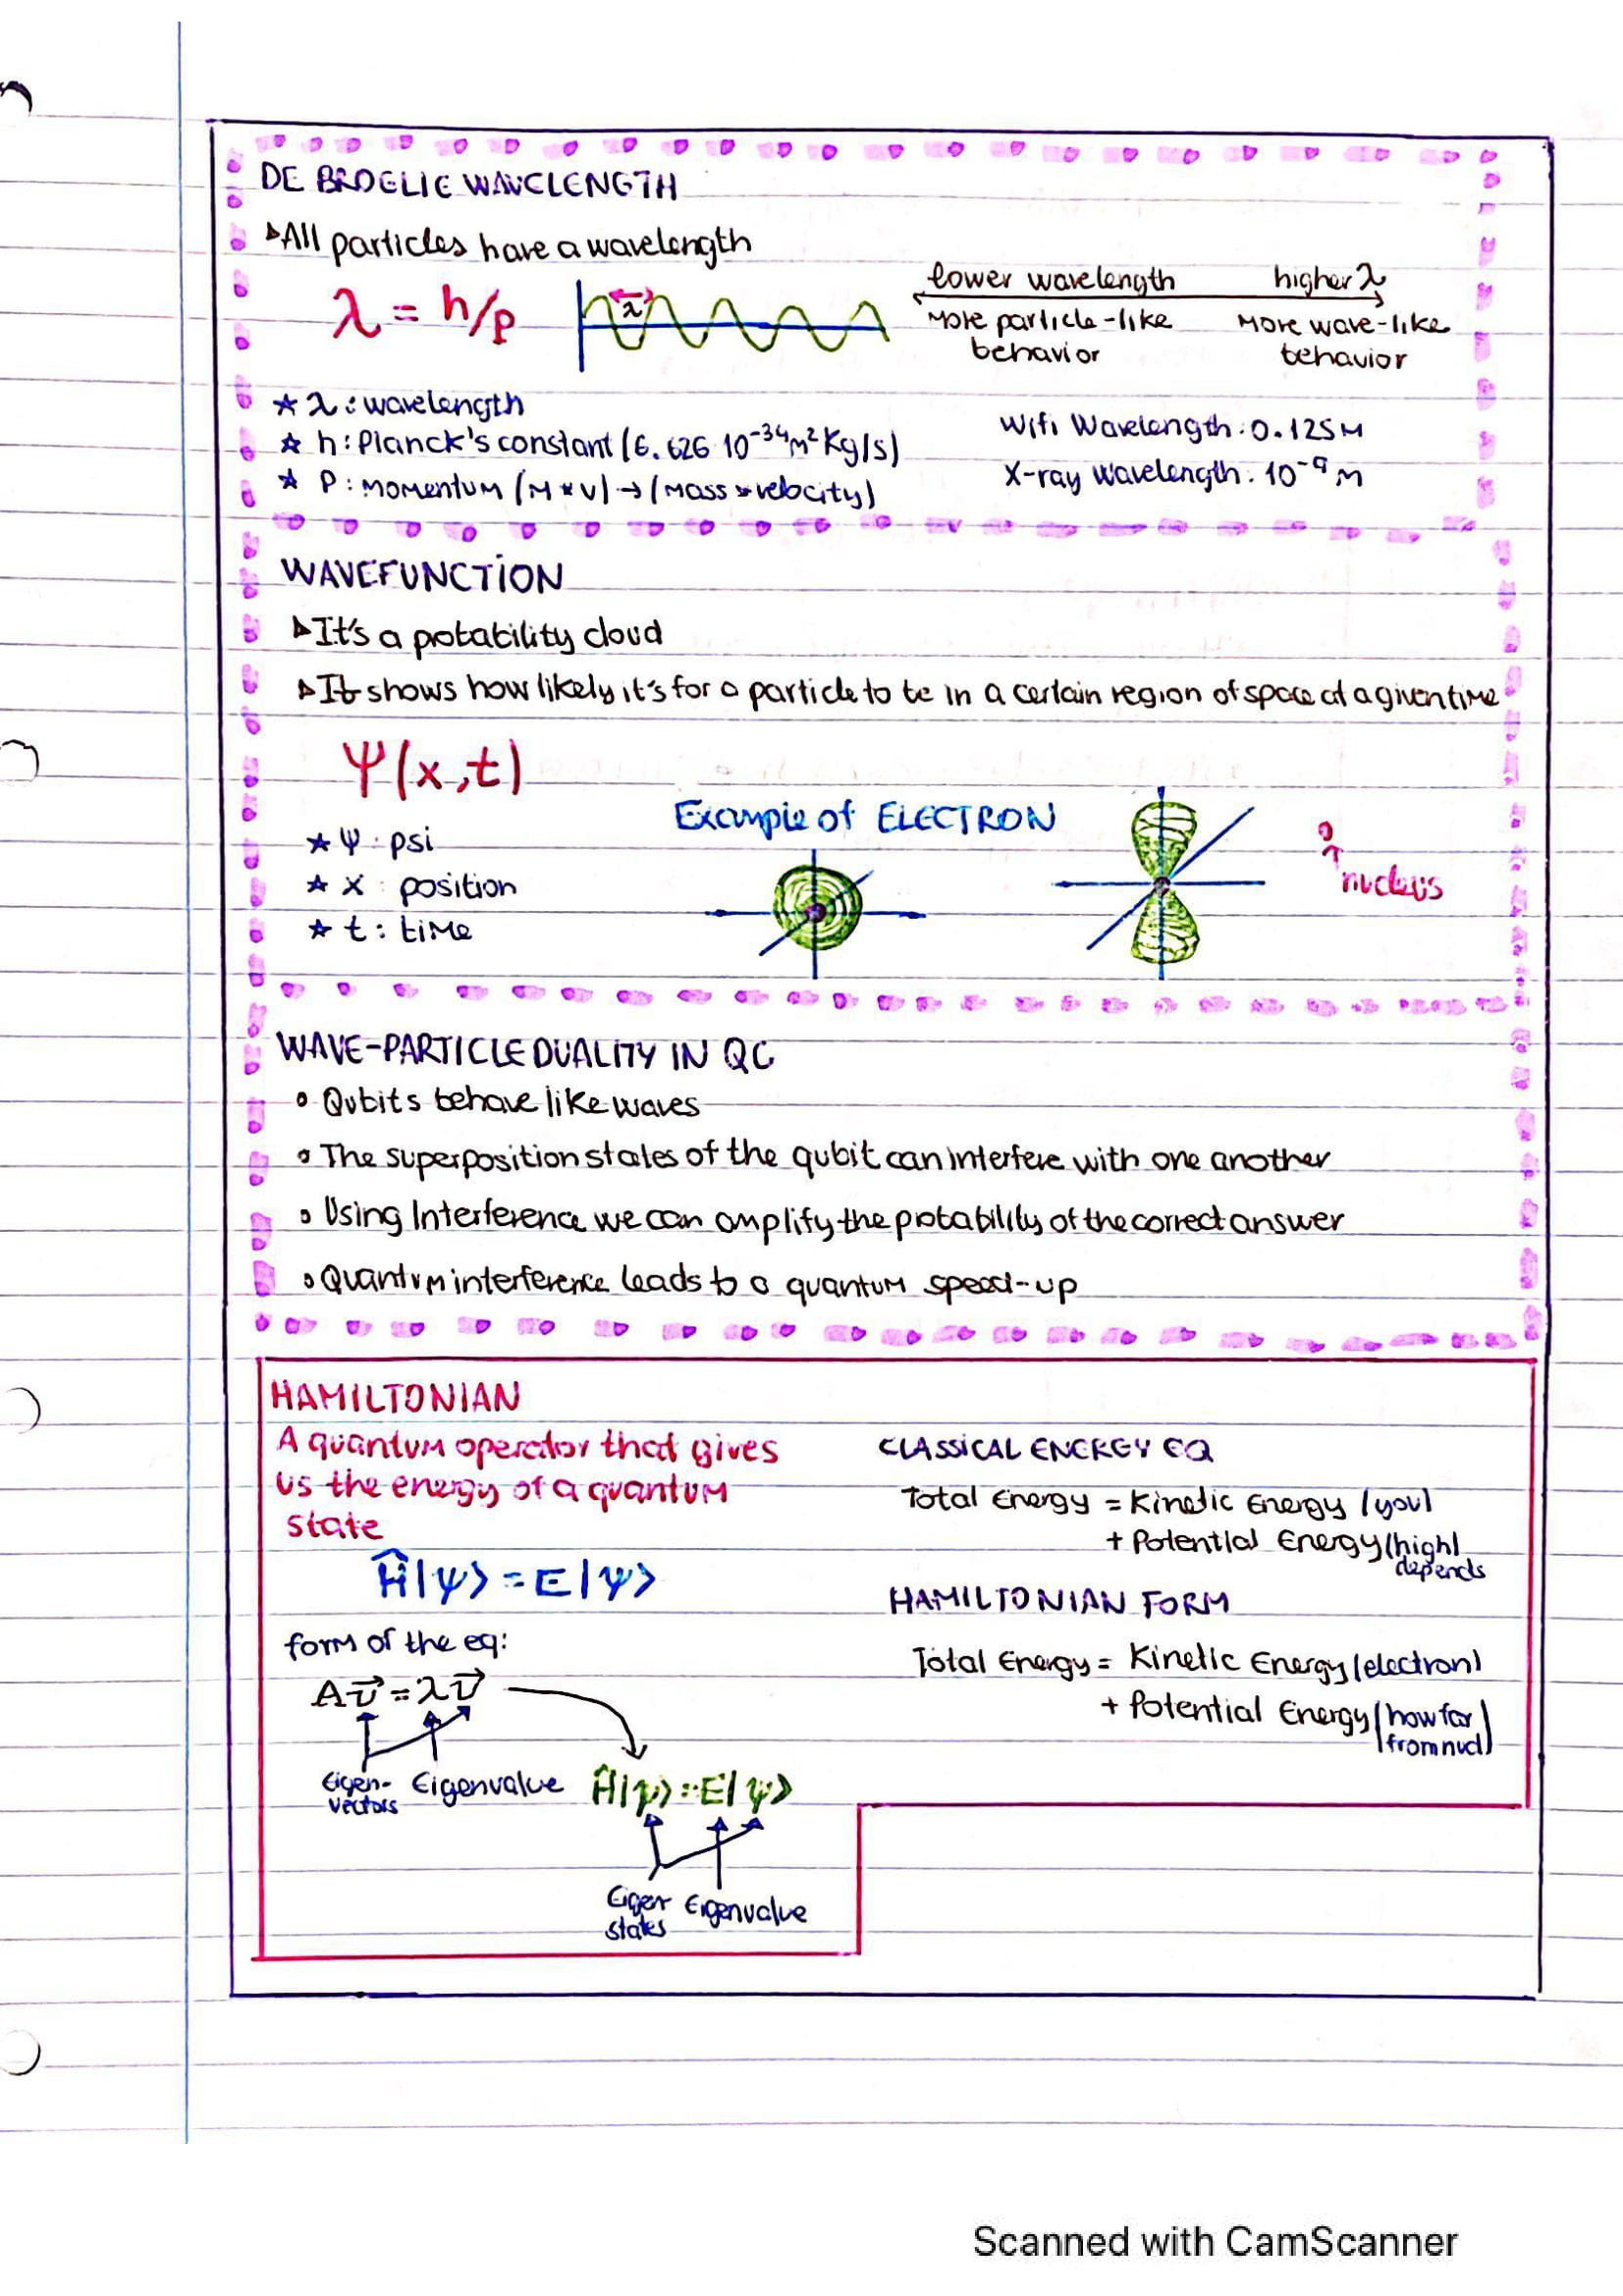 DE BROGLIE WAVELENGTH
All particles have a wavelength
λ = h/p
λ
lower wavelength higher λ
More particle-like behavior
More wave-like behavior
★ λ : wavelength
★ h : Planck's constant (6.626 10⁻³⁴ m² Kg/s)
★ P : momentum (M * v) → (mass * velocity)
Wifi Wavelength : 0.125M
X-ray Wavelength : 10⁻⁹ m
WAVEFUNCTİON
It's a probability cloud
It shows how likely it's for a particle to be in a certain region of space at a given time
Ψ(x,t)
★ Ψ : psi
★ x : position
★ t : time
Example of ELECTRON
nucleus
WAVE-PARTICLE DUALITY IN QC
Qubits behave like waves
The superposition states of the qubit can interfere with one another
Using Interference we can amplify the probability of the correct answer
Quantum interference leads to a quantum speed-up
HAMILTONIAN
A quantum operator that gives
us the energy of a quantum
state
Ĥ|ψ> = E|ψ>
form of the eq:
Av⃗ = λv⃗
Eigen-vectors Eigenvalue
Ĥ|ψ> = E|ψ>
Eigen states Eigenvalue
CLASSICAL ENERGY EQ
Total Energy = Kinetic Energy (you)
+ Potential Energy (high)
depends
HAMILTONIAN FORM
Total Energy = Kinetic Energy (electron)
+ Potential Energy (how far
from nucl)
Scanned with CamScanner